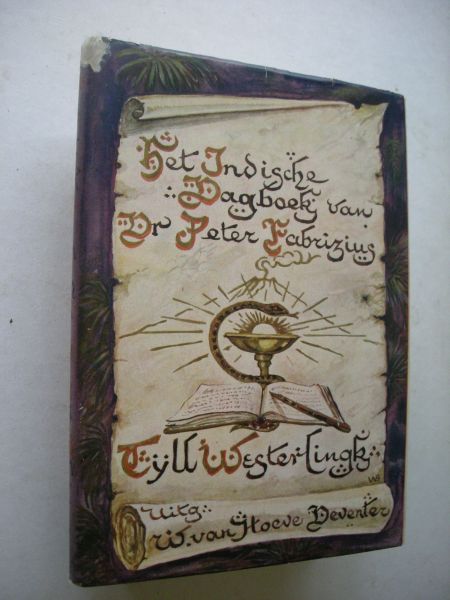 Het Indische
Dagboek van
Dr Peter Fabrizius
Tÿll Westerlingk
Uitg
W. van Hoeve Deventer